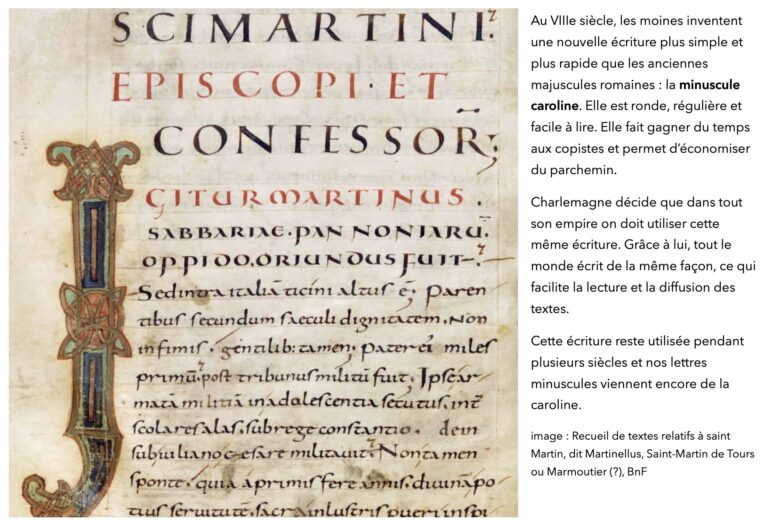 SCI MARTINI.
EPISCOPI · ET
CONFESSOR;
IGITUR MARTINUS.
SABBARIAE · PANNONIARŪ.
OPPIDO. ORIUNDUS FUIT.
Sed intra italiā ticini altus ē; Paren
tibus secundum saeculi dignitatem. Non
infimis. gentilib; tamen. Pater ei miles
primū. post tribunus militū fuit. Ipse ar
matā militiā in adolescentia secutus. int
scolares alas. sub rege constantio. dein
sub iuliano cesare militavit. Non tamen
sponte. quia a primis fere annis. divinā po
tius servitutē. sacra inlustris pueri inspi
Au VIIIe siècle, les moines inventent
une nouvelle écriture plus simple et
plus rapide que les anciennes
majuscules romaines : la minuscule
caroline. Elle est ronde, régulière et
facile à lire. Elle fait gagner du temps
aux copistes et permet d’économiser
du parchemin.
Charlemagne décide que dans tout
son empire on doit utiliser cette
même écriture. Grâce à lui, tout le
monde écrit de la même façon, ce qui
facilite la lecture et la diffusion des
textes.
Cette écriture reste utilisée pendant
plusieurs siècles et nos lettres
minuscules viennent encore de la
caroline.
image : Recueil de textes relatifs à saint
Martin, dit Martinellus, Saint-Martin de Tours
ou Marmoutier (?), BnF